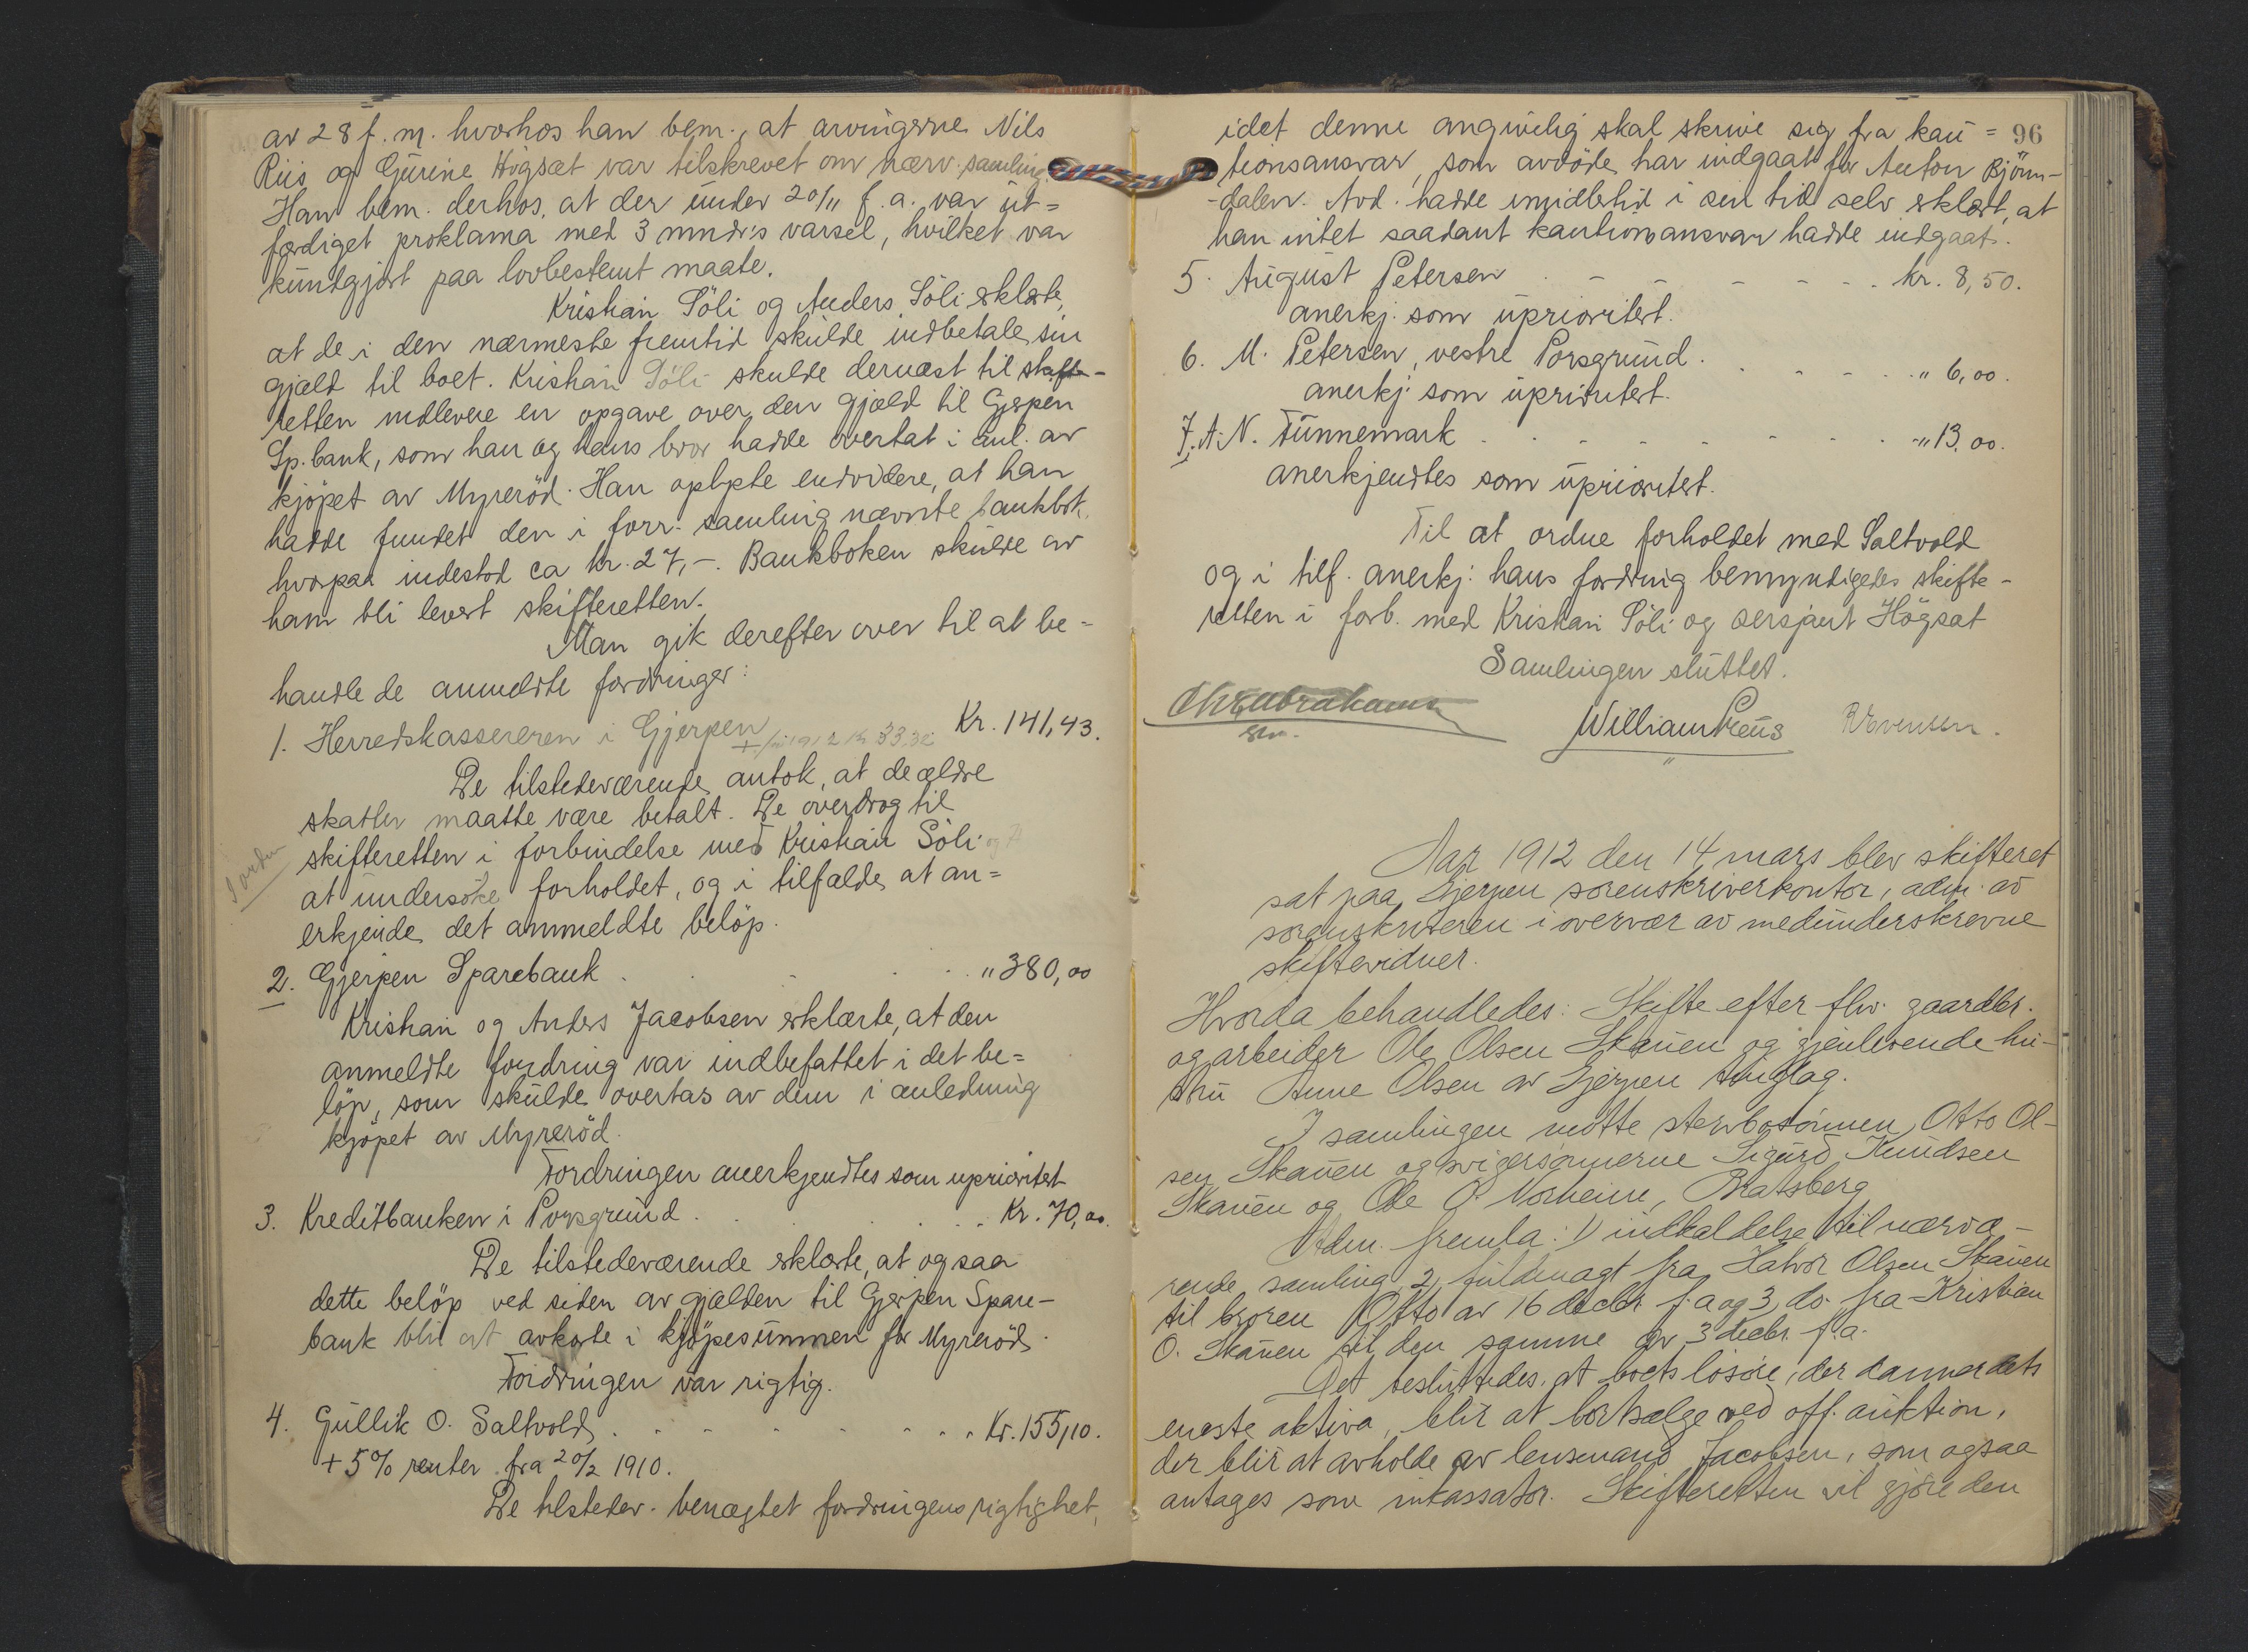 av 28 f. m. hvorhos han bem., at arvingerne Nils
Riis og Gurine Högsæt var tilskrevet om nærv. samling.
Han bem. derhos, at der under 20/11 f. a. var ut=
færdiget proklama med 3 mndr's varsel, hvilket var
kundgjort paa lovbestemt maate.
Kristian Söli og Anders Söli erklærte,
at de i den nærmeste fremtid skulde indbetale sin
gjæld til boet. Kristian Söli skulde dernæst til skifte-
retten indlevere en opgave over den gjæld til Gjerpen
Sp.bank, som han og hans bror hadde overtat i anl. av
kjöpet av Myreröd. Han oplyste endvidere, at han
hadde fundet den i forr. samling nævnte bankbok,
hvorpaa indestod ca kr. 27,-. Bankboken skulde av
ham bli levert skifteretten.
Man gik derefter over til at be=
handle de anmeldte fordringer:
1. Herredskassereren i Gjerpen Kr. 141,43.
+ for 1912 kr 33.32
De tilstedeværende antok, at de ældre
skatter maatte være betalt. De overdrog til
skifteretten i forbindelse med Kristian Söli og A
at undersöke forholdet, og i tilfælde at an=
erkjende det anmeldte belöp.
I orden
2. Gjerpen Sparebank . . . . . " 380,00
Kristian og Anders Jacobsen erklærte, at den
anmeldte fordring var indbefattet i det be=
löp, som skulde overtas av dem i anledning
kjöpet av Myreröd.
Fordringen anerkjendtes som uprioritet
3. Kreditbanken i Porsgrund . . . . . Kr. 70,00.
De tilstedeværende erklærte, at ogsaa
dette belöp ved siden av gjælden til Gjerpen Spare-
bank blir at avkorte i kjöpesummen for Myreröd.
Fordringen var rigtig.
4. Gullik O. Saltvold . . . . . Kr. 155,10.
+ 5% renter fra 20/2 1910.
De tilstedev. benægtet fordringens rigtighet,
96
idet denne angivelig skal skrive sig fra kau=
tionsansvar, som avdöde har indgaat for Anton Björn-
-dalen. Avd. hadde imidlertid i sin tid selv erklært, at
han intet saadant kautionsansvar hadde indgaat.
5. August Petersen . . . . . kr. 8,50.
anerkj. som uprioritert.
6. M. Petersen, vestre Porsgrund . . . . . " 6,00.
anerkj. som uprioritert.
7. A. N. Tunnemark . . . . . " 13,00.
anerkjendtes som uprioritert.
Til at ordne forholdet med Saltvold
og i tilf. anerkj. hans fordring bemyndigedes skifte-
retten i forb. med Kristian Söli og sersjant Högsæt
Samlingen sluttet.
Chr. Abrahamsen
William Preus R Evensen.
Aar 1912 den 14 mars blev skifteret
sat paa Gjerpen sorenskriverkontor, adm. av
sorenskriveren i overvær av medunderskrevne
skiftevidner.
Hvorda behandledes: Skifte efter fhv. gaardbr.
og arbeider Ole Olsen Skauen og gjenlevende hu-
stru Anne Olsen av Gjerpen tinglag.
I samlingen mötte sterbosönnen Otto Ol-
sen Skauen og svigersönnerne Sigurd Knudsen
Skauen og Ole O. Norheim, Bratsberg
Adm. fremla: 1) indkaldelse til nærvæ-
rende samling 2, fuldmagt fra Halvor Olsen Skauen
til broren Otto av 16 decbr. f. a og 3, do. fra Kristian
O. Skauen til den samme av 3 decbr. f. a.
Det besluttedes, at boets lösöre, der danner dets
eneste aktiva, blir at bortsælge ved off. auktion,
der blir at avholde av lensmand Jacobsen, som ogsaa
antages som inkassator. Skifteretten vil gjöre den